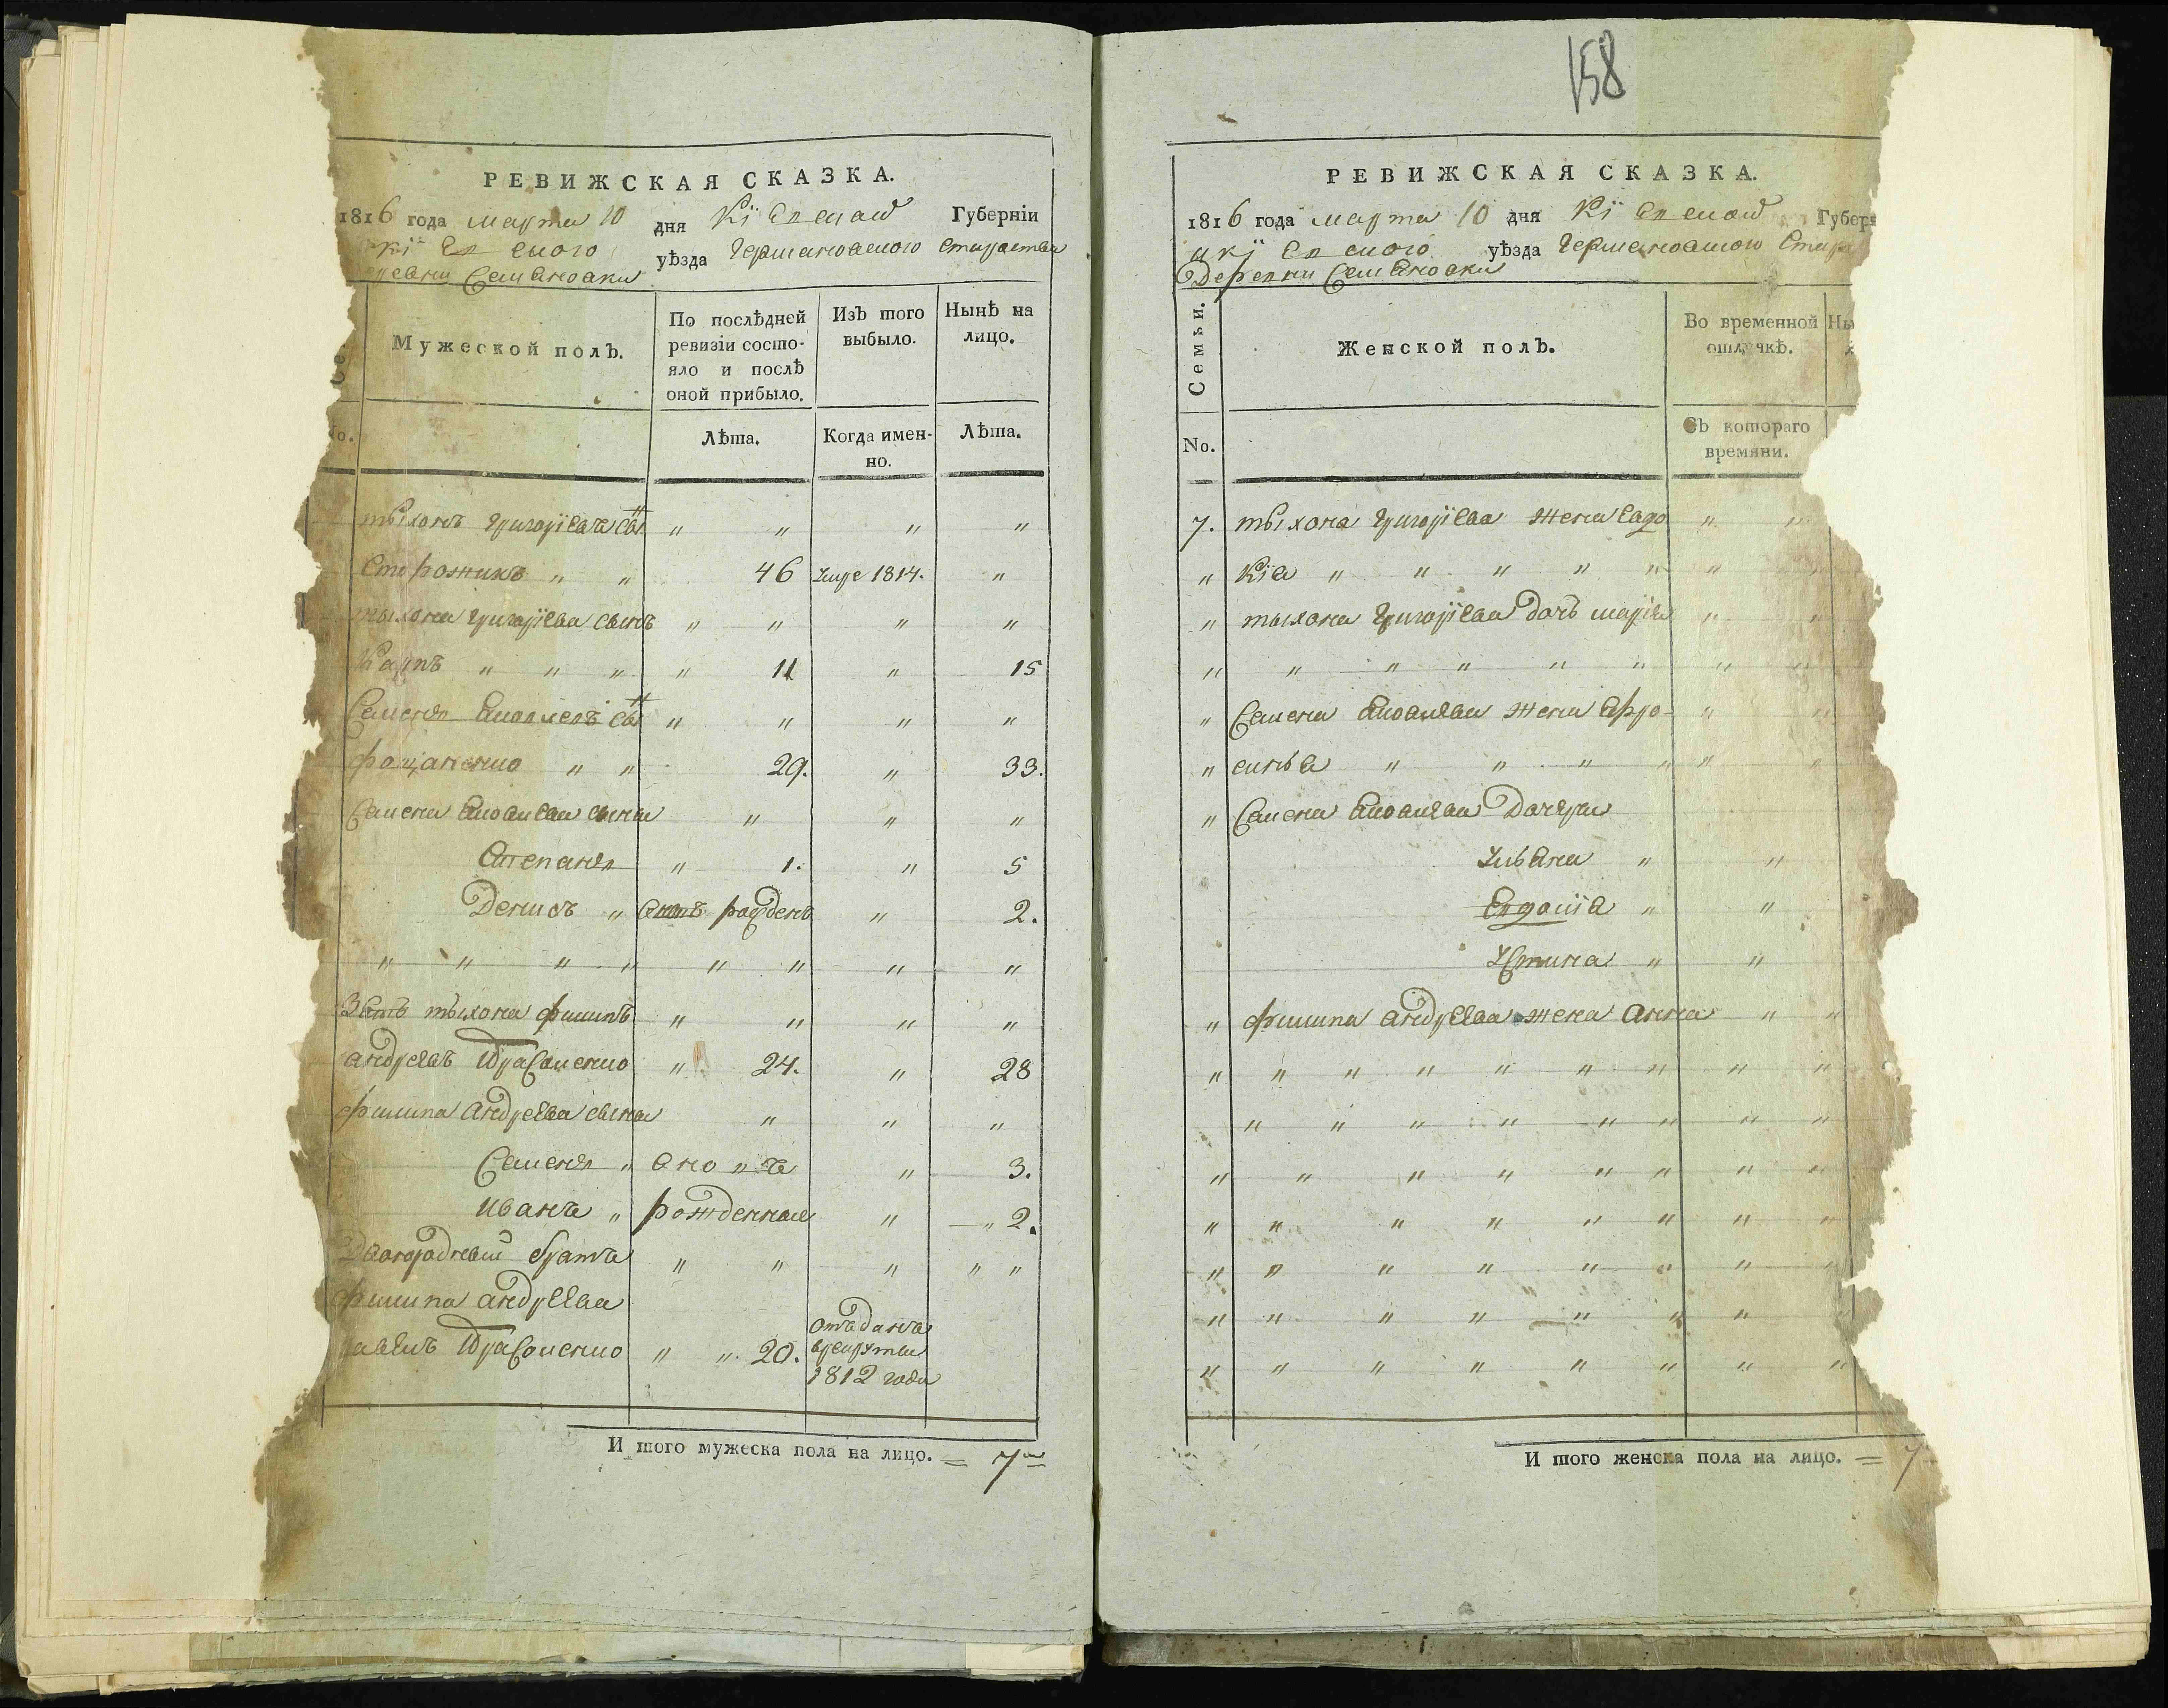 158
РЕВИЖСКАЯ СКАЗКА.
1816 года марта 10 дня Кіевской Губерніи
кіевского уѣзда Германовского Староства
деревни Семеновки
Мужеской полъ.
По послѣдней ревизіи состояло и послѣ оной прибыло.
Изъ того выбыло.
Нынѣ на лицо.
No.
Лѣта.
Когда именно.
Лѣта.
тыхонъ григоріевъ сынъ " " " "
Сторожикъ " " 46 умре 1814. "
тыхона григоріева сынъ " " " "
Карпъ " " " " 11 " 15
Семенъ сын " " " "
" " 29. " 33.
Семена сыны " " "
Степанъ " 1. " 5
Денисъ " рожденъ " 2.
" " " " " " " "
Зять тыхона филипъ " " " "
андреевъ " 24. " 28
филипа андреева сыны " " "
Семенъ " вновъ " 3.
иванъ " рожденные " " 2.
Двоюродный братъ " " " " "
филипа андреева
павелъ " " 20. отъданъ
врекруты
1812 года
И того мужеска пола на лицо. = 7
РЕВИЖСКАЯ СКАЗКА.
1816 года марта 10 дня Кіевской Губер
кіевского уѣзда Германовского Стар
Деревни Семеновки
Семьи.
Женской полъ.
Во временной отлучкѣ.
No.
Съ котораго времяни.
7. тыхона григоріева жена евдо " "
" кіа " " " " " " "
" тыхона григоріева дочъ марія " "
" " " " " " " "
" Семена жена ефро- " "
" синѣа " " " " " "
" Семена дочери
улѣана " "
Евдокіа " "
Устина " "
" филипа андреева жена анна " "
" " " " " " " " "
" " " " " " " "
" " " " " " " "
" " " " " " " "
" " " " " " " "
" " " " " " "
" " " " " " " "
И того женска пола на лицо. = 7